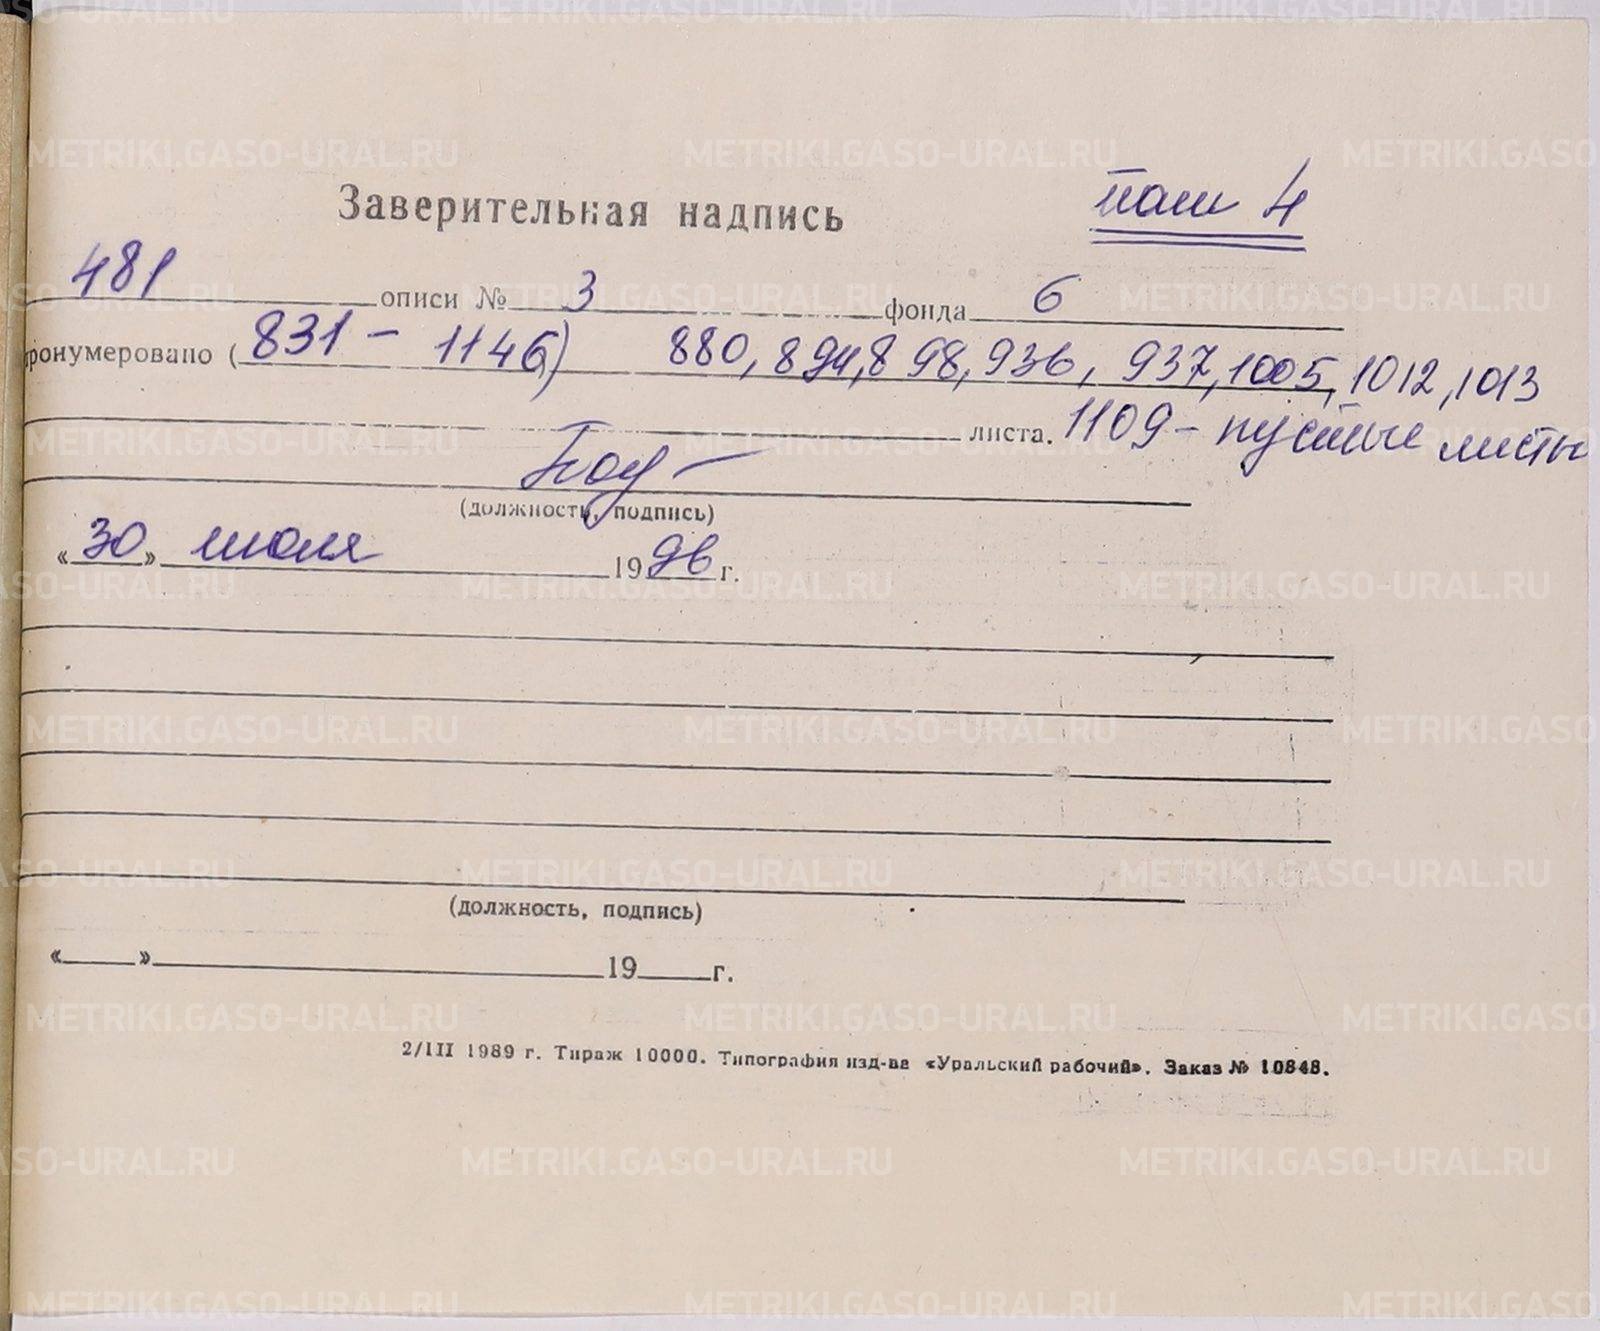 Заверительная надпись том 4
481 описи № 3 фонда 6
пронумеровано (831 - 1146) 880, 894, 898, 936, 937, 1005, 1012, 1013
листа. 1109 - пустые листы
(должность, подпись)
«30» июля 1996 г.
(должность, подпись)
«____» 19____г.
2/III 1989 г. Тираж 10000. Типография изд-ва «Уральский рабочий». Заказ № 10848.
METRIKI.GASO-URAL.RU